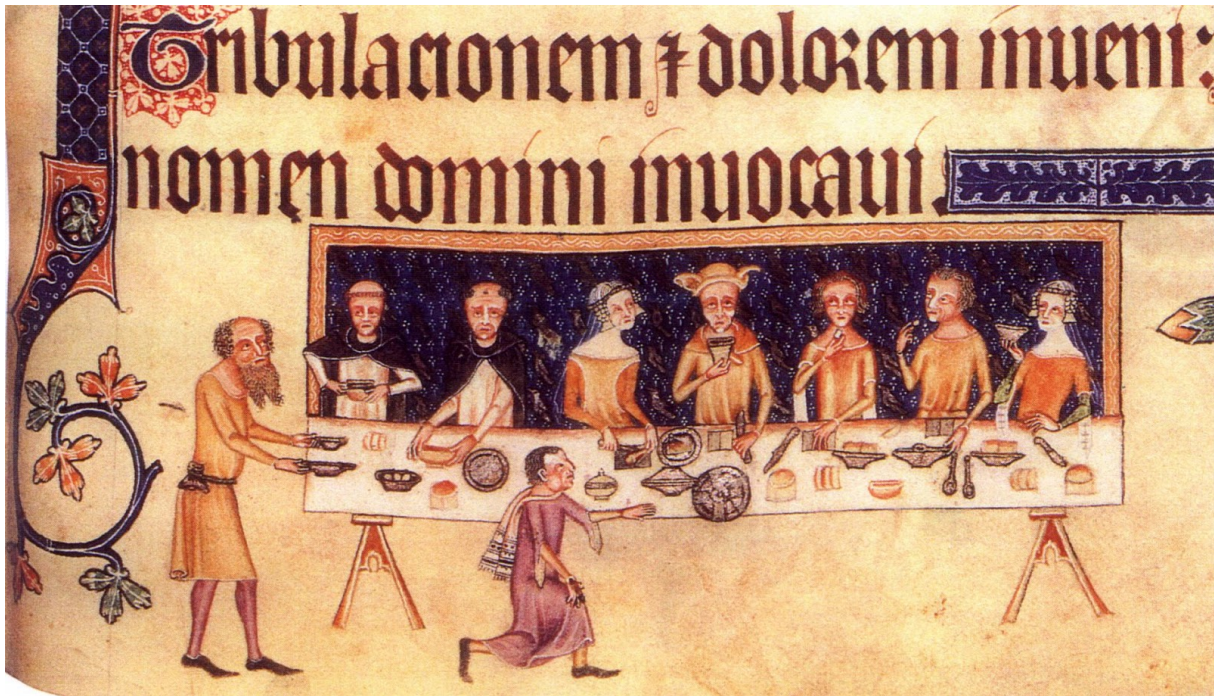 Tribulacionem ⁊ dolorem inueni:
nomen domini inuocaui.